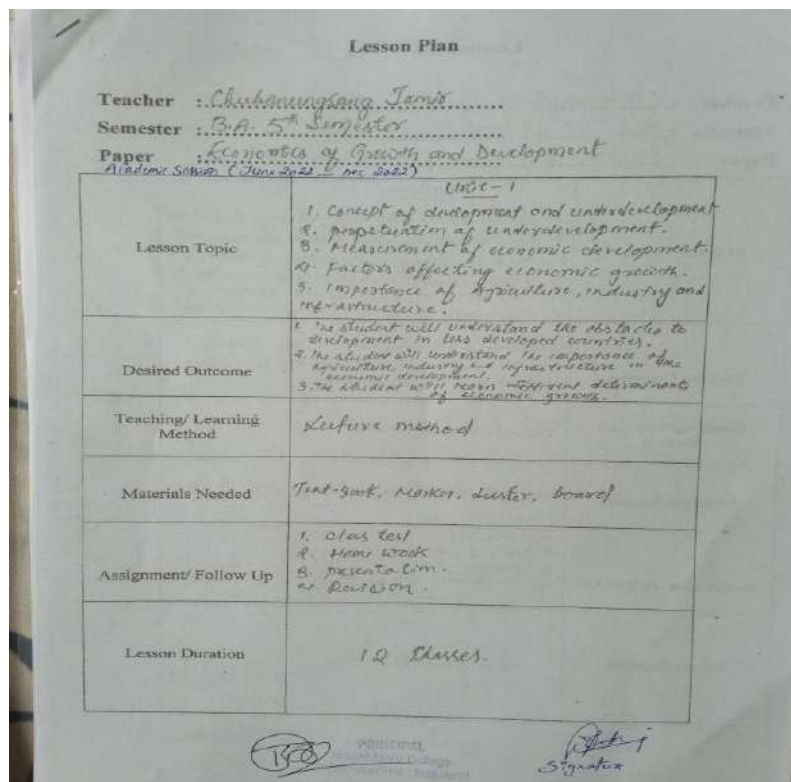 Lesson Plan
Teacher :
Semester : B.A. 5th Semester
Paper : Economics of Growth and Development
Academic Session (June 2022 - Dec 2022)
Unit - 1
Lesson Topic
1. Concept of development and underdevelopment
2. perpetuation of underdevelopment.
3. Measurement of economic development.
4. Factors affecting economic growth.
5. Importance of Agriculture, industry and
infrastructure.
Desired Outcome
1. The student will understand the obstacles to
development in less developed countries.
2. The student will understand the importance of
agriculture, industry and infrastructure in the
economic development.
3. The student will learn different determinants
of economic growth.
Teaching/ Learning
Method
Lecture method
Materials Needed
Text-book, Marker, duster, board
Assignment/ Follow Up
1. Clas test
2. Home work
3. presentation.
4. Revision.
Lesson Duration
12 Classes.
PRINCIPAL
College
Signature